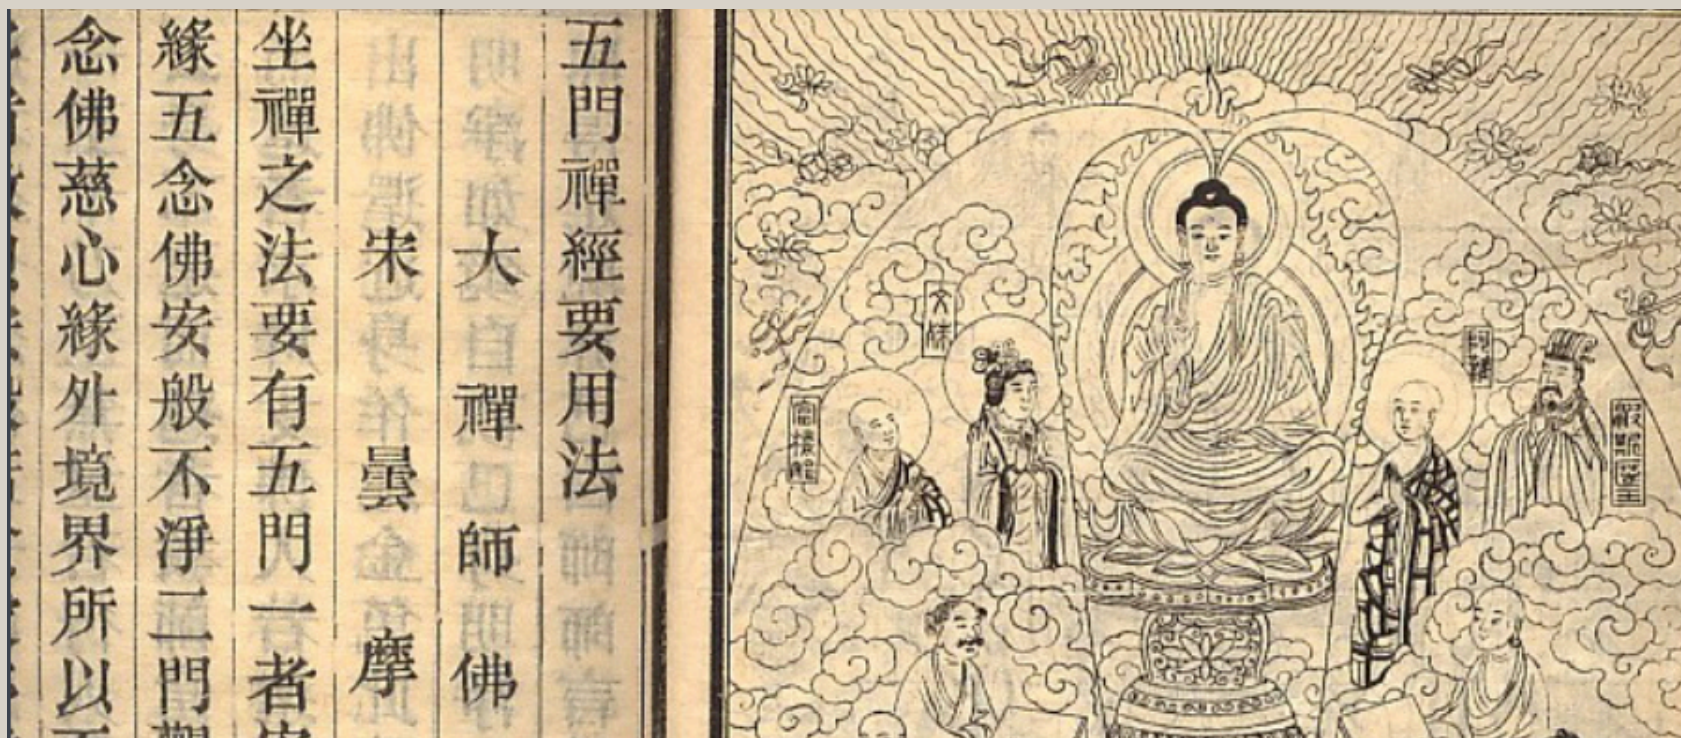 文殊
五門禪經要用法
大禪師佛
宋曇摩
坐禪之法要有五門一者
緣五念佛安般不淨二門
念佛慈心緣外境界所以